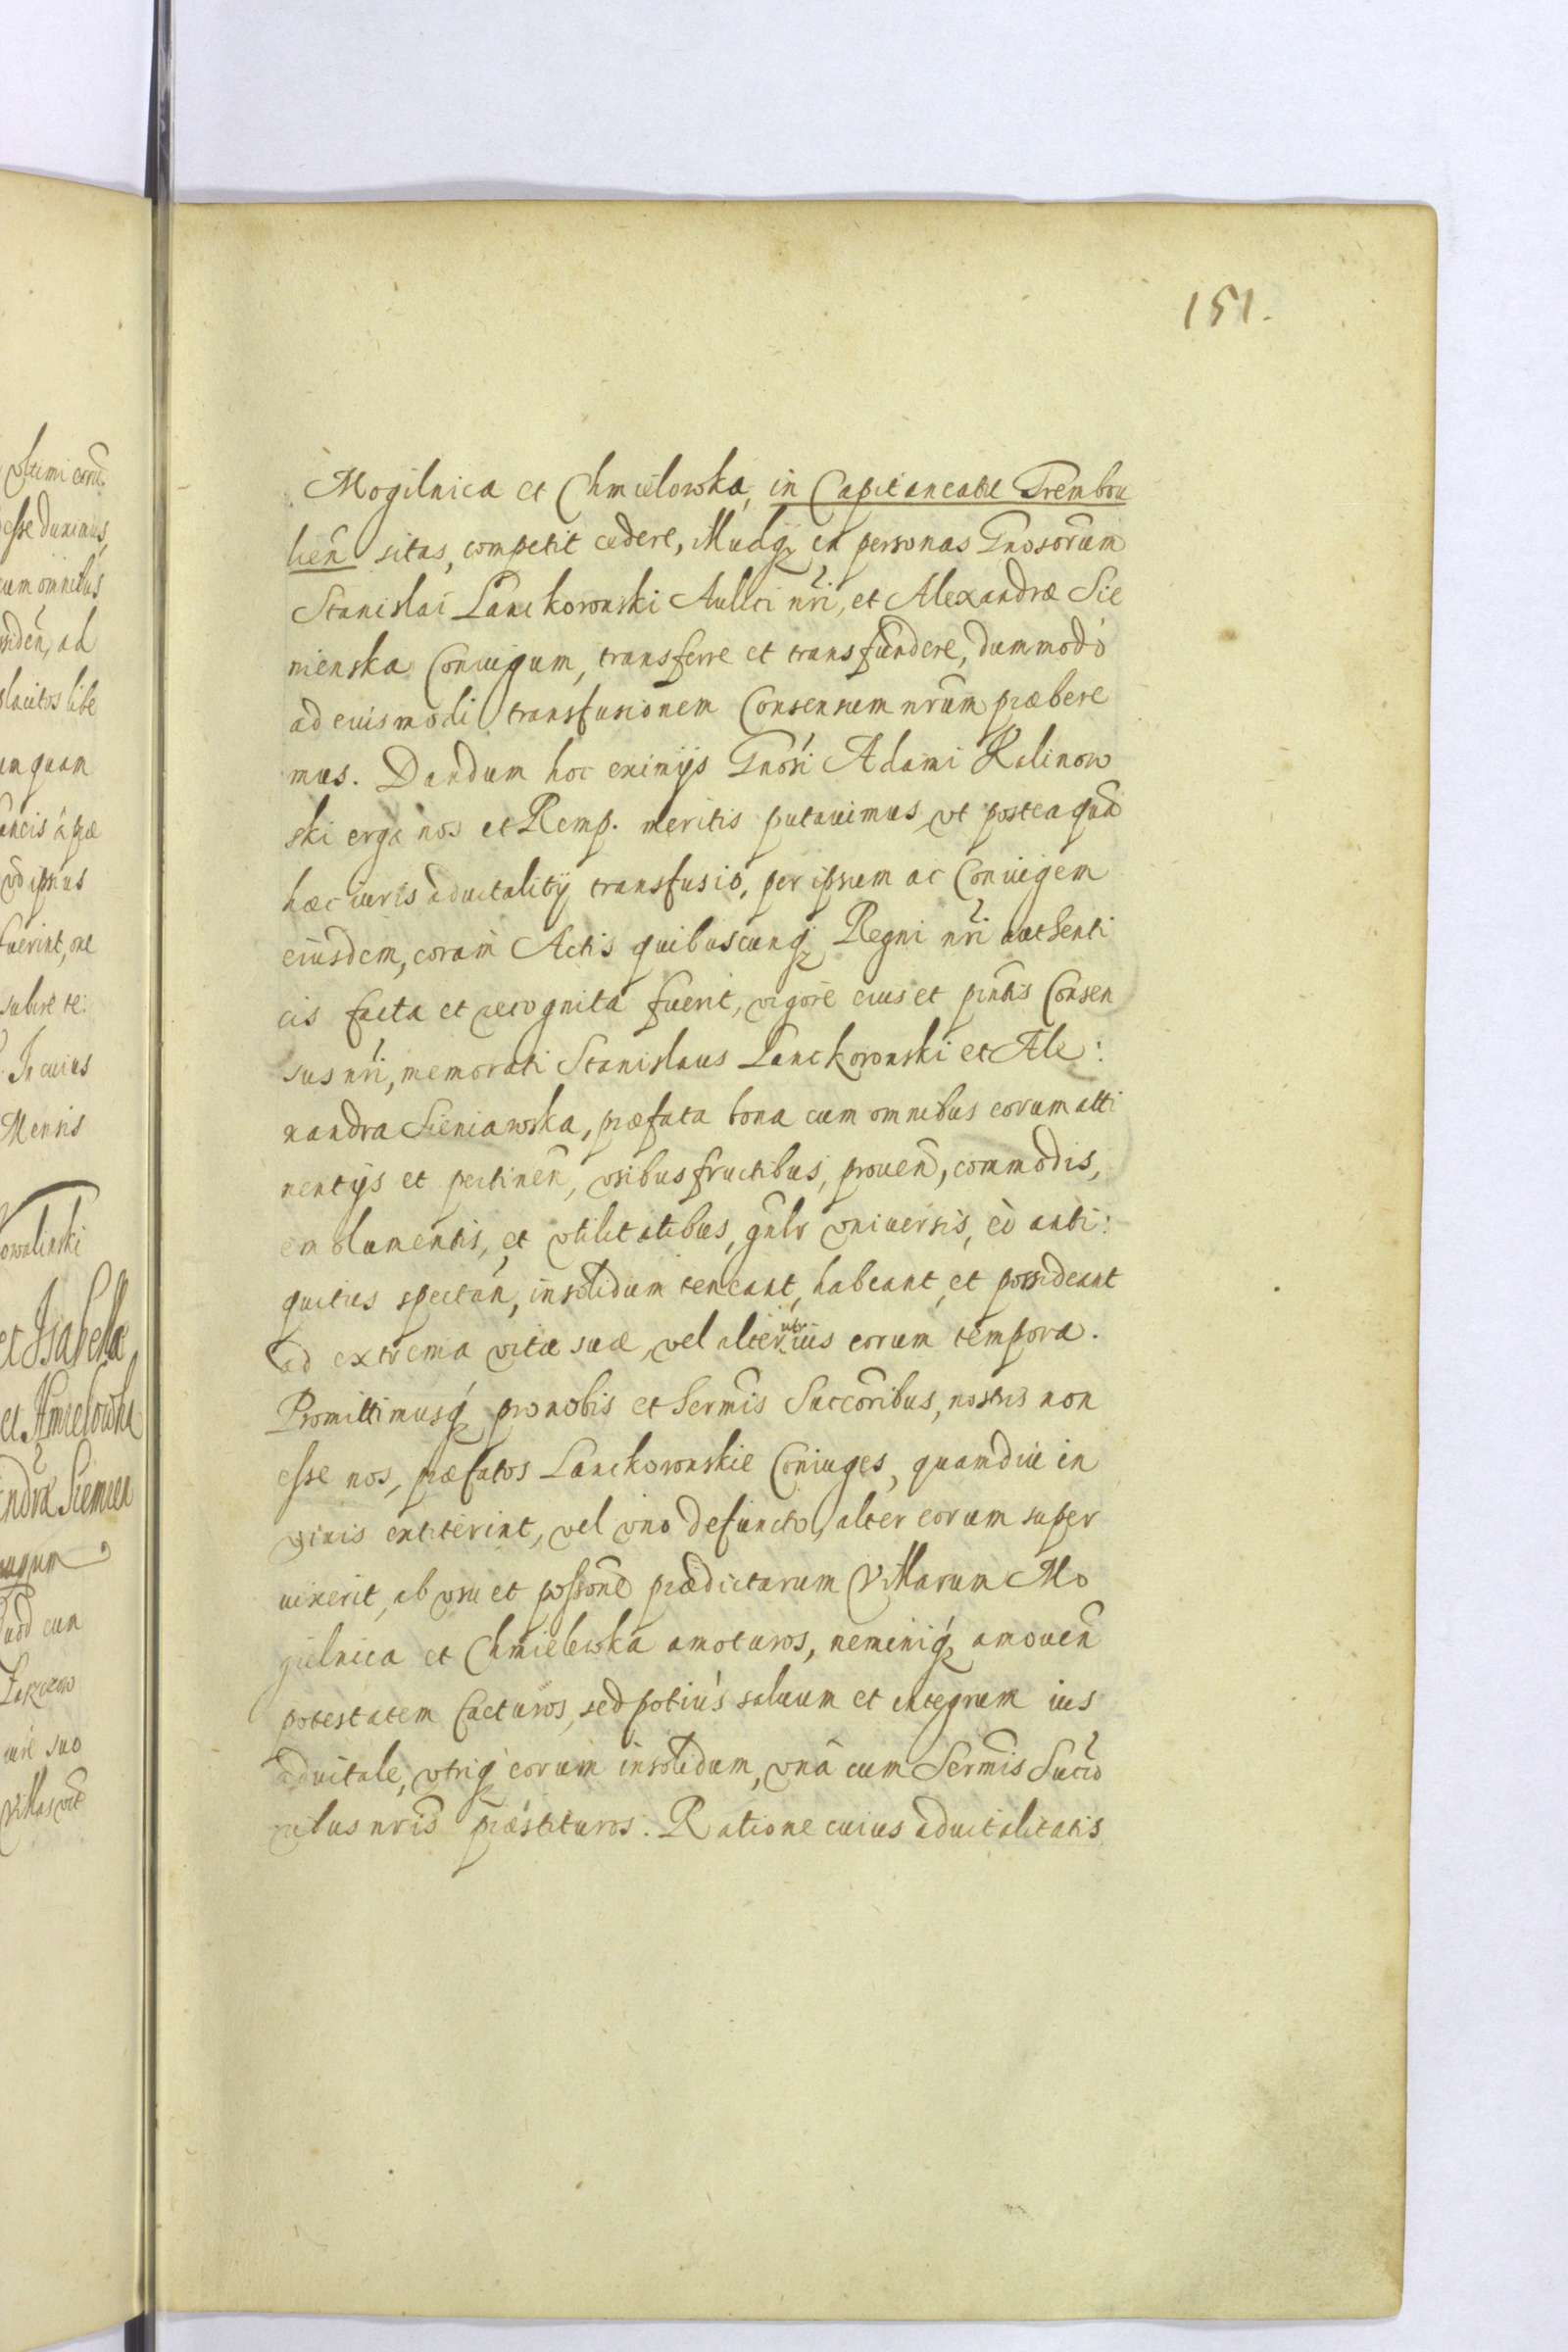 151.
Mogilnica et Chmielowka, in Capitaneatu Trembou
lien̄ sitas, competit cedere, illudq; in personas Gnosorum
Stanislai Lanckoronski Aulici nr̄i, et Alexandræ Sie
nienska Coniugum, transferre et transfundere, dummodò
ad eiusmodi transfusionem Consensum nr̄um præbere
mus. Dandum hoc eximijs Gnosi Adami Kalinow
ski erga nos et Remp. meritis putauimus, vt posteaquā
hæc iuris aduitalitij transfusio, per ipsum ac Coniugem
eiusdem, coram Actis quibuscunq; Regni nr̄i authenti
cis facta et recognita fuerit, vigore eius et pn̄tis Consen
sus nr̄i, memorati Stanislaus Lanckoronski et Ale:
xandra Sieniawska, præfata bona cum omnibus eorum atti
nentijs et pertinen̄, vsibus fructibus, prouen̄, commodis,
emolumentis, et vtilitatibus, gn̄lr vniuersis, eò anti:
quitus spectan̄, insolidum teneant, habeant, et possideant
ad extrema vitæ suæ, vel alterutrius eorum tempora.
Promittimusq; pro nobis et Sermis Succoribus, nostris non
esse nos, præfatos Lanckoronskie Coniuges, quamdiu in
viuis extiterint, vel vno defuncto, alter eorum super
uixerit, ab vsu et possone prædictarum Villarum Mo
gielnica et Chmielewka amoturos, neminiq; amouen̄
potestatem facturos, sed potiùs saluum et integrum ius
aduitale, vtriq; eorum insolidum, vnà cum Sermis Succo
ribus nris̄ præstituros. Ratione cuius aduitalitatis